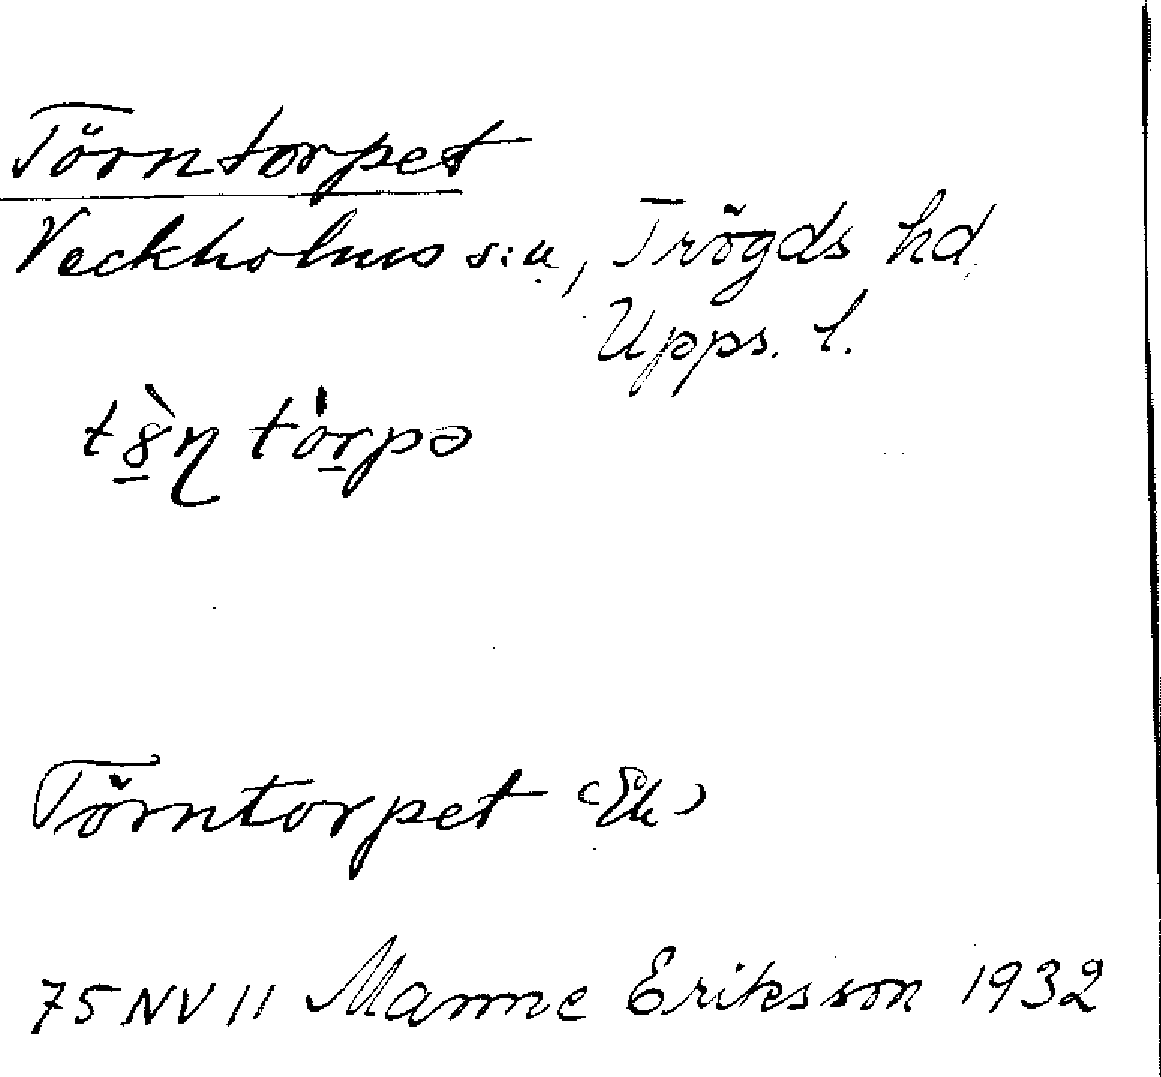 Törntorpet
Veckholms s:n, Trögds hd,
Upps. l.
Törntorpet (Ek)
75 NV 11 Manne Eriksson 1932